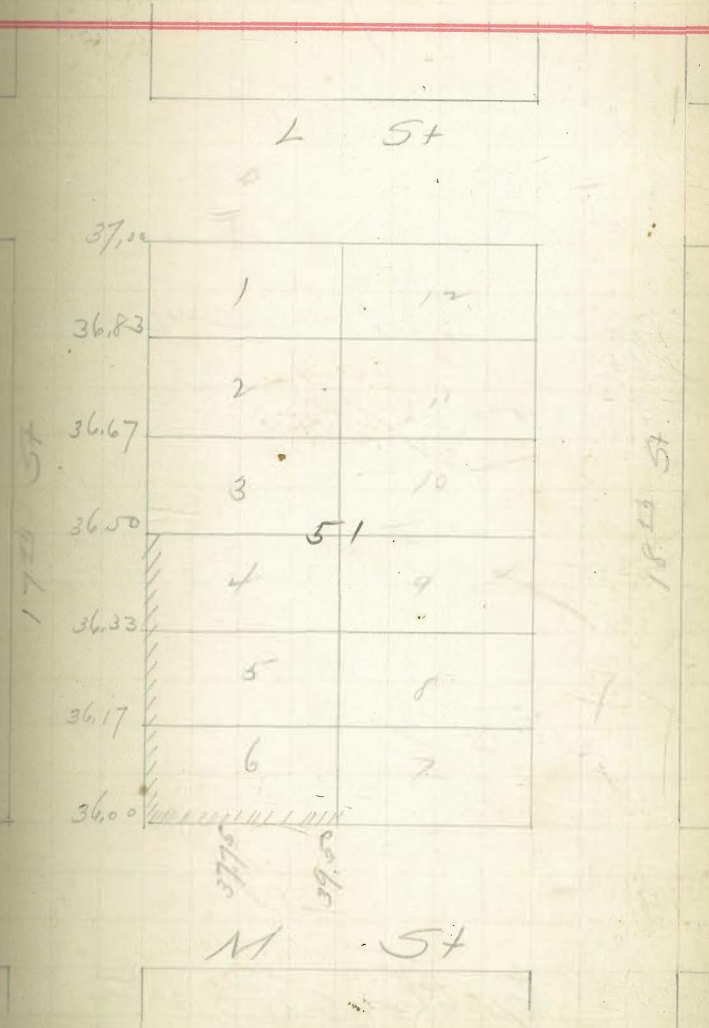 L St
37.00
1 12
36.83
2 11
36.67
17th St
3 10
18th St
36.50
51
4 9
36.33
5 8
36.17
6 7
36.00
37.75 39.50
M St